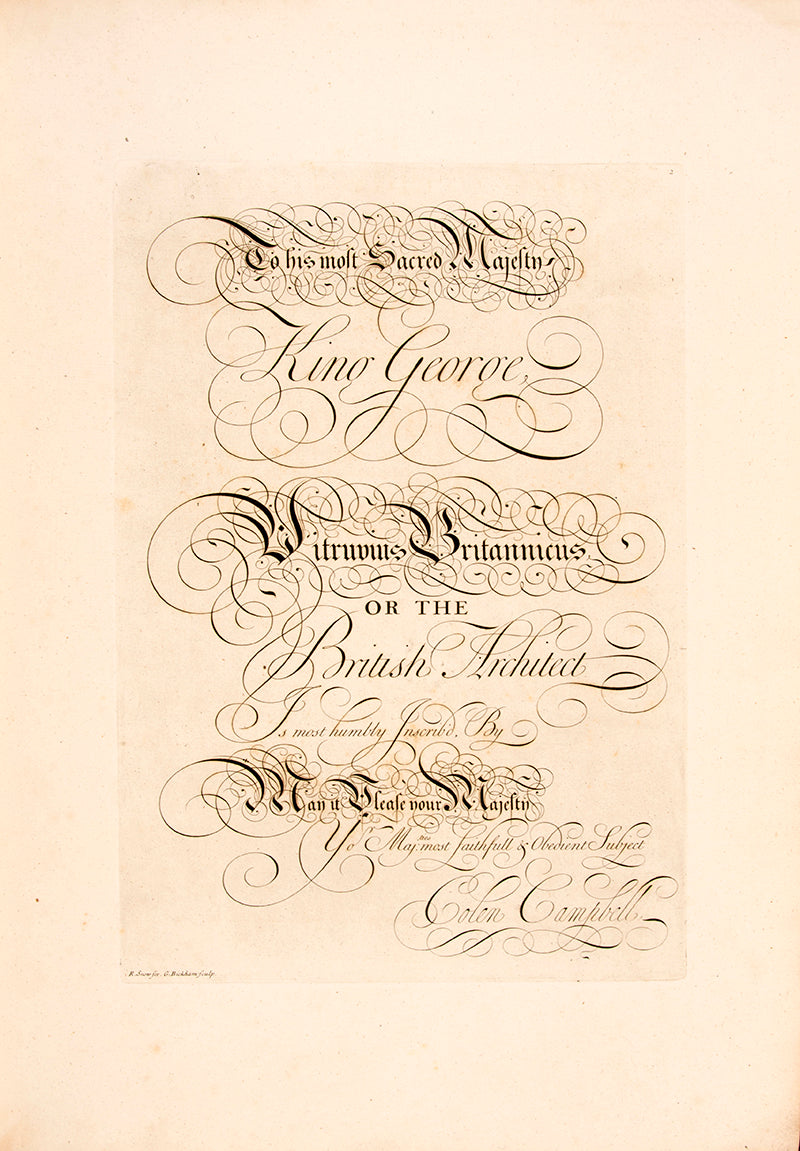 2
To his most Sacred Majesty
King George,
Vitruvius Britannicus,
OR THE
British Architect
Is most humbly Inscrib'd. By
May it Please your Majesty
Yoʳ Maj:ᵗⁱᵉˢ most faithfull & Obedient Subject
Colen Campbell
R. Snow scr. G. Bickham sculp.